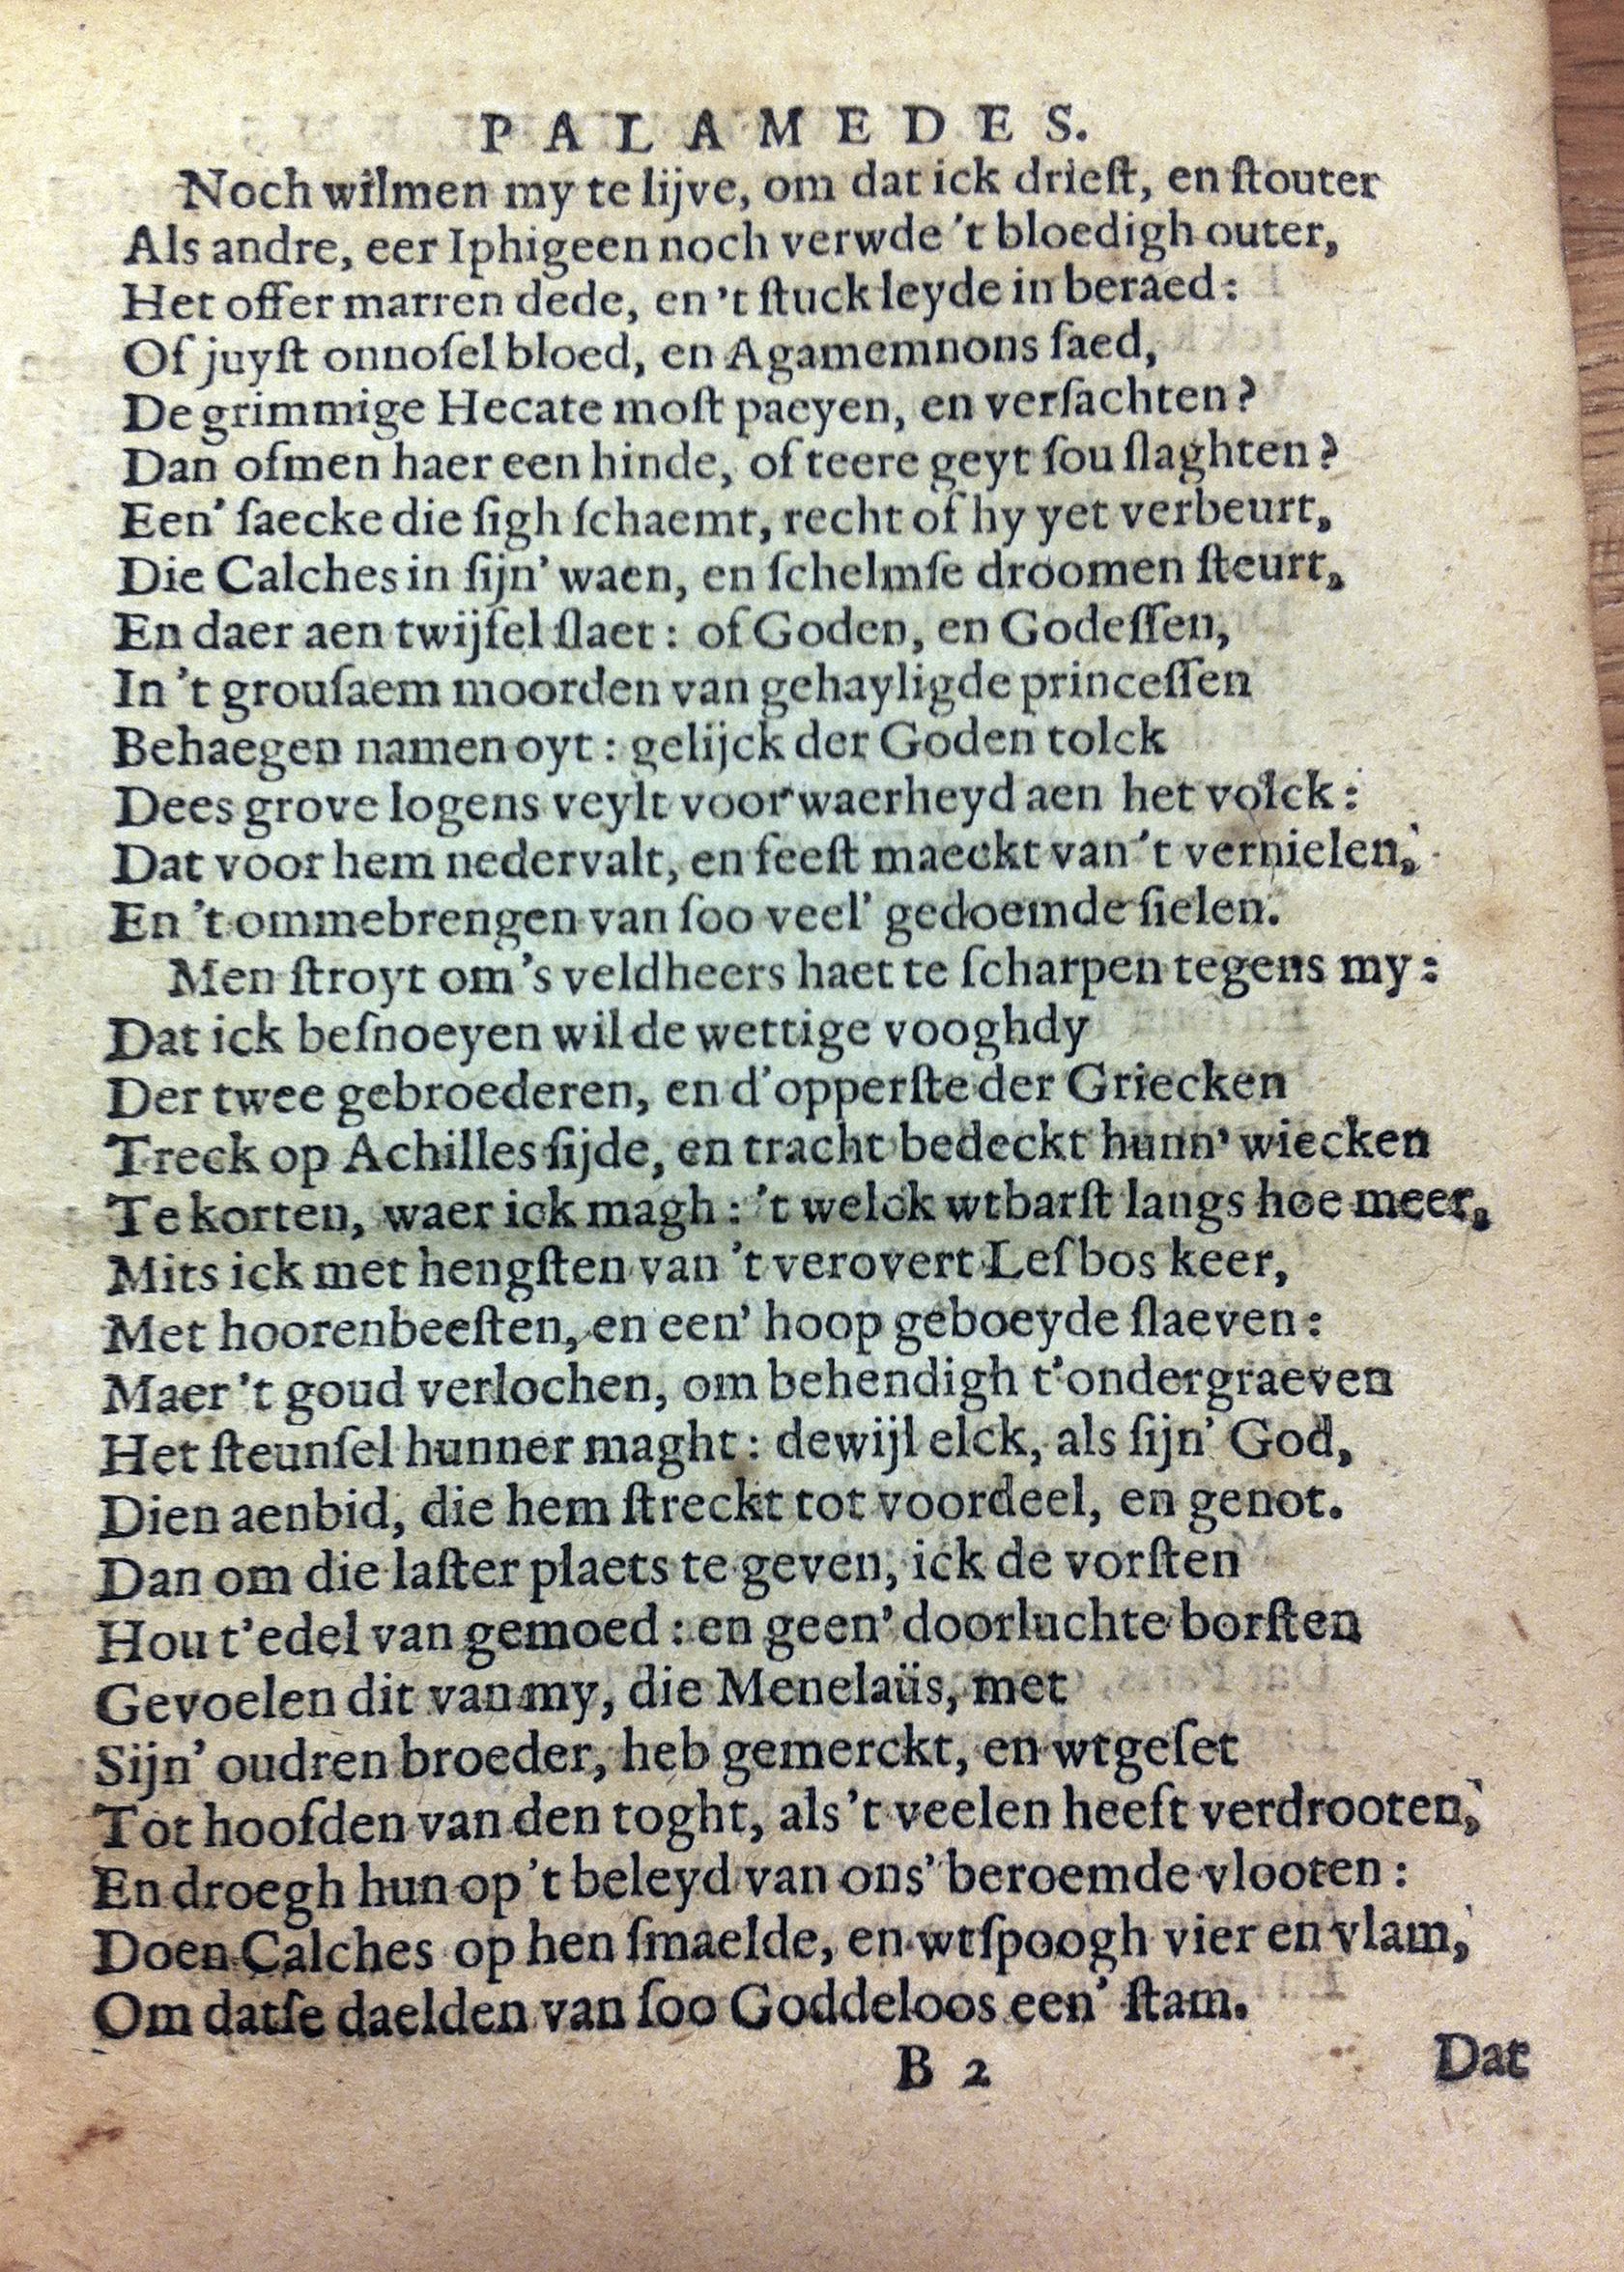 PALAMEDES.
Noch wilmen my te lijve, om dat ick drieſt, en ſtouter
Als andre, eer Iphigeen noch verwde 't bloedigh outer,
Het offer marren dede, en 't ſtuck leyde in beraed:
Of juyſt onnoſel bloed, en Agamemnons ſaed,
De grimmige Hecate moſt paeyen, en verſachten?
Dan ofmen haer een hinde, of teere geyt ſou ſlaghten?
Een' ſaecke die ſigh ſchaemt, recht of hy yet verbeurt,
Die Calches in ſijn' waen, en ſchelmſe droomen ſteurt,
En daer aen twijfel ſlaet: of Goden, en Godeſſen,
In 't grouſaem moorden van gehayligde princeſſen
Behaegen namen oyt: gelijck der Goden tolck
Dees grove logens veylt voor waerheyd aen het volck:
Dat voor hem nedervalt, en feeſt maeckt van 't vernielen,
En 't ommebrengen van ſoo veel' gedoemde ſielen.
Men ſtroyt om 's veldheers haet te ſcharpen tegens my:
Dat ick beſnoeyen wil de wettige vooghdy
Der twee gebroederen, en d'opperſte der Griecken
Treck op Achilles ſijde, en tracht bedeckt hunn' wiecken
Te korten, waer ick magh: 't welck wtbarſt langs hoe meer,
Mits ick met hengſten van 't verovert Leſbos keer,
Met hoorenbeeſten, en een' hoop geboeyde ſlaeven:
Maer 't goud verlochen, om behendigh t'ondergraeven
Het ſteunſel hunner maght: dewijl elck, als ſijn' God,
Dien aenbid, die hem ſtreckt tot voordeel, en genot.
Dan om die laſter plaets te geven, ick de vorſten
Hou t'edel van gemoed: en geen' doorluchte borſten
Gevoelen dit van my, die Menelaüs, met
Sijn' oudren broeder, heb gemerckt, en wtgeſet
Tot hoofden van den toght, als 't veelen heeft verdrooten,
En droegh hun op 't beleyd van ons' beroemde vlooten:
Doen Calches op hen ſmaelde, en wtſpoogh vier en vlam,
Om datſe daelden van ſoo Goddeloos een' ſtam.
B 2
Dat